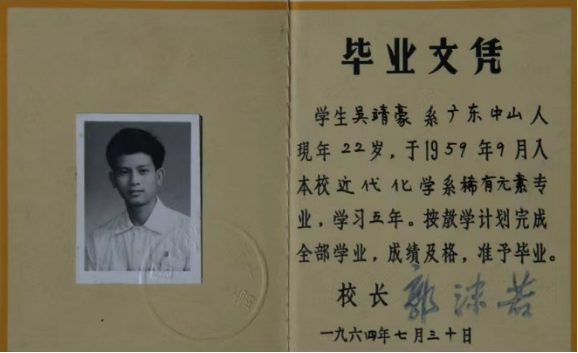 毕业文凭
学生吴靖豪系广东中山人
现年22岁，于1959年9月入
本校近代化学系稀有元素专
业，学习五年。按教学计划完成
全部学业，成绩及格，准予毕业。
校长 郭沫若
一九六四年七月三十日